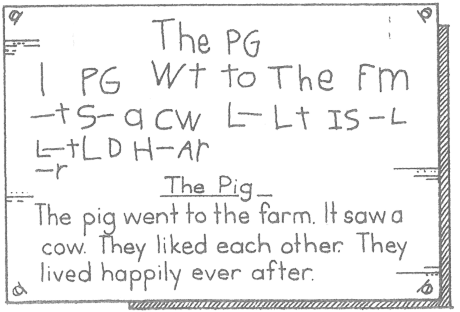 The PG
I PG Wt to The Fm
—t S— a CW L— Lt IS —L
L—t LD H—Ar
—r
The Pig
The pig went to the farm. It saw a
cow. They liked each other. They
lived happily ever after.